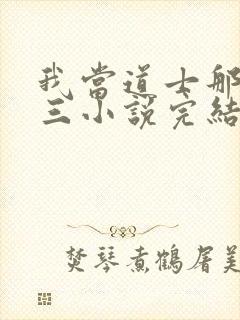 我當道士那
三小說完結
焚琴煮鶴屠美